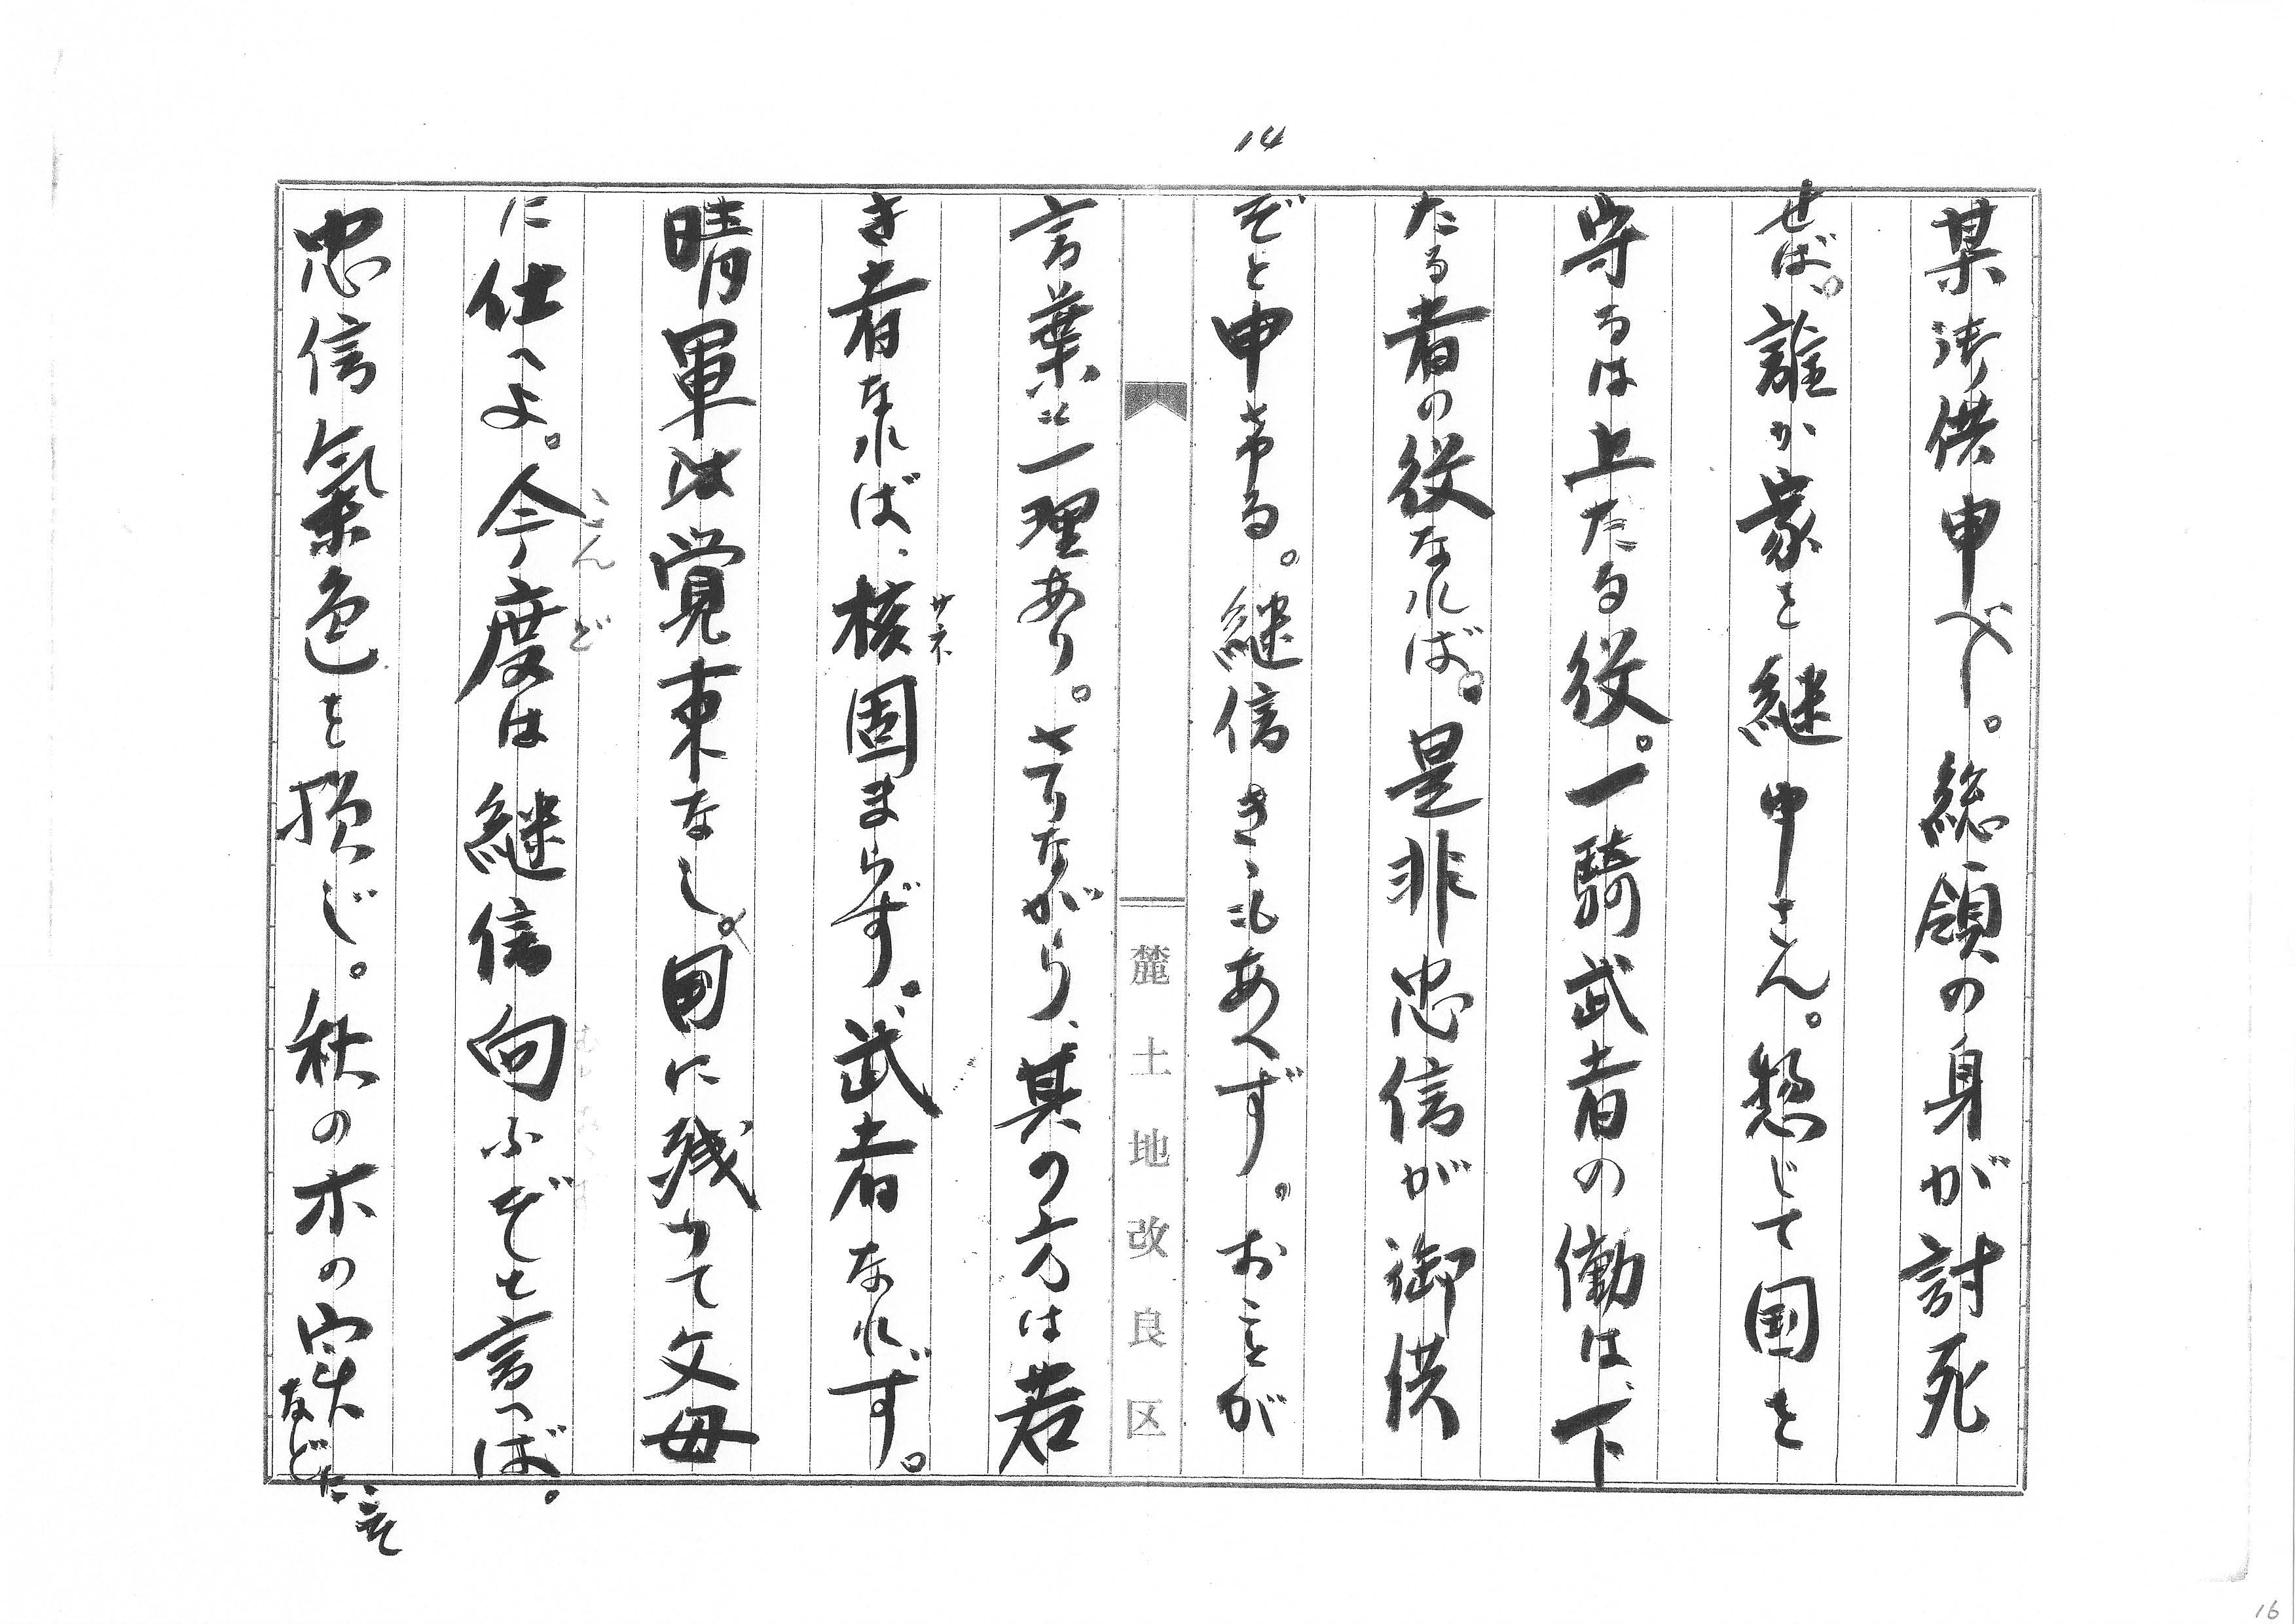 14
某御供申べし。総領の身が討死
せば。誰か家を継申さん。惣じて国を
守るは上たる役。一騎武者の働は、下
たる者の役なれば。是非忠信が御供
ぞと申さる。継信きゝもあへず。おことが
麓土地改良区
言葉に一理あり。さりながら、其の方は若
き者なれば、核固まらず。武者なれず。
サネ
晴軍は覚束なし。国に残りて父母
に仕へよ。今度は継信向ふぞと言へば。
こんど
忠信氣色を損じ。秋の木の実
などにこそ
16